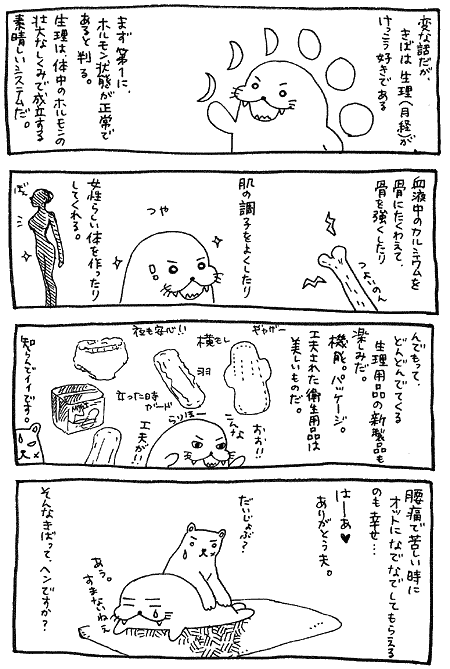 変な話だが、
きばは生理(月経)が
けっこう好きである
まず第1に、
ホルモン状態が正常で
あると判る。
生理は体中のホルモンの
壮大なしくみで成立する
素晴しいシステムだ。
血液中のカルシウムを
骨にたくわえて、
骨を強くしたり
つよいのん
肌の調子をよくしたり
つや
女性らしい体を作ったり
してくれる。
ぼん
んでもって、
どんどんでてくる
生理用品の新製品も
楽しみだ。
機能。パッケージ。
工夫された衛生用品は
美しいものだ。
ギャザー
横モレ
羽
夜も安心!!
立った時
ガード
おお!!
こんな
らりほー
工夫が!!
知らんでイイです。
腰痛で苦しい時に
オットになでなでしてもらえる
のも幸せ…
はーあ♥
ありがとう夫。
だいじょぶ?
あう。
すまないねえ
そんなきばって、ヘンですか?